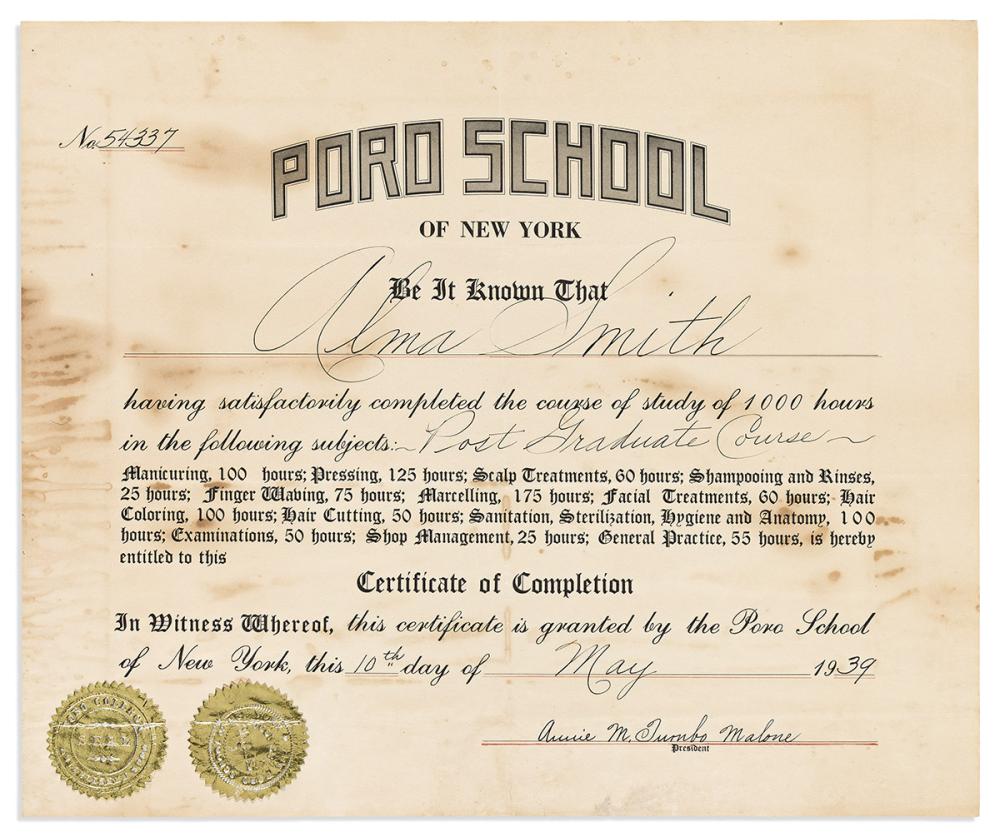 No. 54337
PORO SCHOOL
OF NEW YORK
Be It Known That
Alma Smith
having satisfactorily completed the course of study of 1000 hours
in the following subjects:- Post Graduate Course
Manicuring, 100 hours; Pressing, 125 hours; Scalp Treatments, 60 hours; Shampooing and Rinses,
25 hours; Finger Waving, 75 hours; Marcelling, 175 hours; Facial Treatments, 60 hours; Hair
Coloring, 100 hours; Hair Cutting, 50 hours; Sanitation, Sterilization, Hygiene and Anatomy, 100
hours; Examinations, 50 hours; Shop Management, 25 hours; General Practice, 55 hours, is hereby
entitled to this
Certificate of Completion
In Witness Whereof, this certificate is granted by the Poro School
of New York, this 10th day of May 1939
PORO COLLEGE
SEAL
Annie M. Turnbo Malone
President